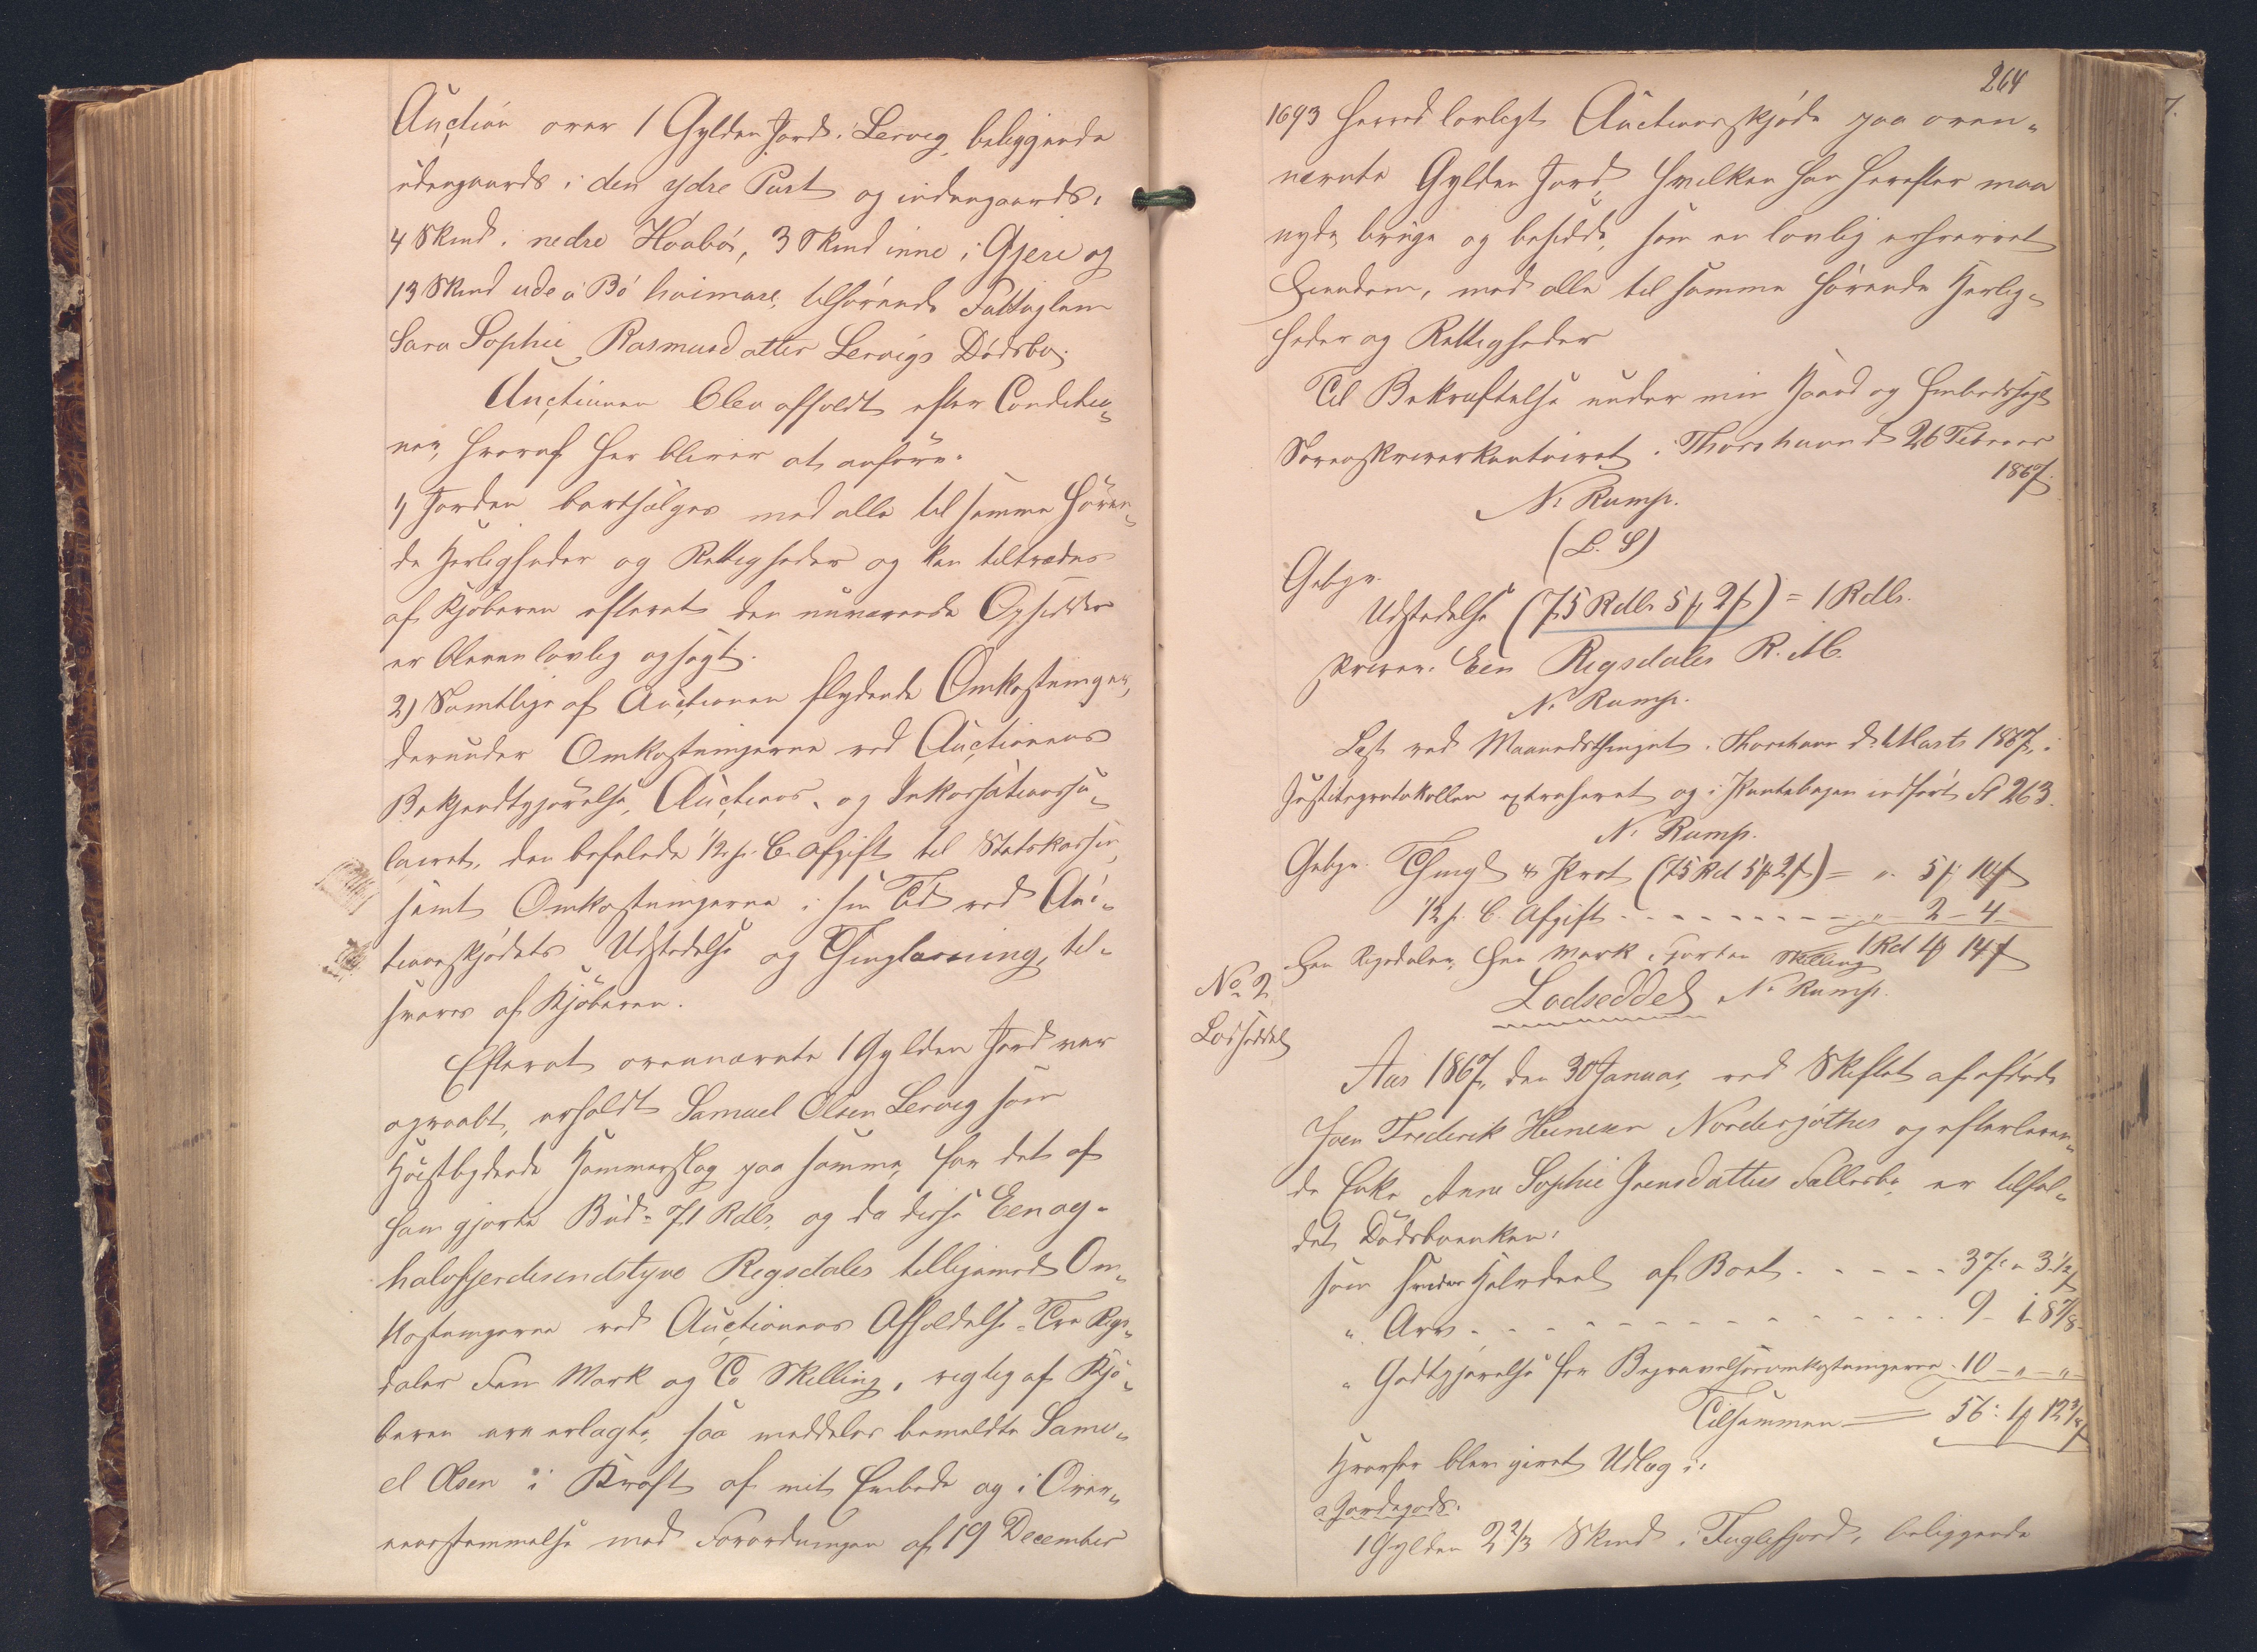 Auction over 1 Gylden Jord i Lervig, beliggende
udengaards i den ydre Part og indengaards:
4 Skind i nedre Hoabø, 3 Skind inne i Gjere og
13 Skind ude á Bø heimare, tilhørende Fattiglem
Sara Sophie Rasmusdatter Lervigs Dødsbo.
Auctionen blev afholdt efter Conditio„
ner, hvoraf her bliver at anføre:
1) Jorden bortsælges med alle til samme høren„
de Herligheder og Rettigheder og kan tiltrædes
af Kjøberen efterat den nuværende Opsidder
er bleven lovlig opsagt.
2) Samtlige af Auctionen flydende Omkostninger,
derunder Omkostningerne ved Auctionens
Bekjendtgjørelse, Auctions- og Inkassationssa„
lairet, den befalede ½ p. C. Afgift til Statskassen,
samt Omkostningerne i sin Tid ved Auc„
tionsskjødets Udstedelse og Thinglæsning, til„
svares af Kjøberen.
Efterat ovennævnte 1 Gylden Jord var
opraabt, erholdt Samuel Olsen Lervig som
Høistbydende Hammerslag paa samme, for det af
ham gjorte Bud = 71 Rdlr, og da disse Een og„
halvfjerdesindstyve Rigsdaler tilligemed Om„
kostningerne ved Auctionens Afholdelse = Tre Rigs„
daler Fem Mark og To Skilling, rigtig af Kjø„
beren ere erlagte, saa meddeles bemeldte Samu„
el Olsen i Kraft af mit Embede og i Over„
eensstemmelse med Forordningen af 19 December
264
1693 herved lovligt Auctionsskjøde paa oven„
nævnte Gylden Jord, hvilken han herefter maa
nyde, bruge og besidde, som en lovlig erhvervet
Eiendom, med alle til samme hørende Herlig„
heder og Rettigheder
Til Bekræftelse under min Haand og Embedssegl
Sorenskriverkontoiret i Thorshavn d 26 Februar
1867.
N. Rump.
(L. S)
Gebyr.
Udstedelse (75 Rdlr 5 ꝑ 2 ꝭ) = 1 Rdlr.
skriver: Een Rigsdaler R. M.
N. Rump.
Læst ved Maanedsthinget i Thorshavn d: Marts 1867, i
Justitsprotokollen extraheret og i Pantebogen indført Fol 263.
N. Rump.
Gebyr. Thingl & Prot (75 Rd 5 ꝑ 2 ꝭ) = „ 5 ꝑ 10 ꝭ
½ p. C. Afgift - - - - - - - „ 2 - 4
1 Rd 1 ꝑ 14 ꝭ
Een Rigsdaler, Een Mark, Fjorten Skilling
N. Rump.
No 2
Lodseddel
Lodseddel
Aar 1867, den 30 Januar, ved Skiftet af afdøde
Joen Frederik Heinesen Nordergjøthes og efterleven„
de Enke Anne Sophie Joensdatters Fællesbo, er tilfal„
det Dødsboenken:
som hendes Halvdeel af Boet - - - - - 37: „ 3½ ꝭ
„ Arv - - - - - - - - - - - - 9 - 1 - 8⅞ -
„ Godtgjørelse for Begravelsesomkostningerne - 10 - „ - „ -
Tilsammen = 56: 1 ꝑ 12 3/8 ꝭ
Hvorfor blev givet Udlæg i:
a, Jordegods:
1 Gylden 2⅔ Skind i Fuglefjord, beliggende